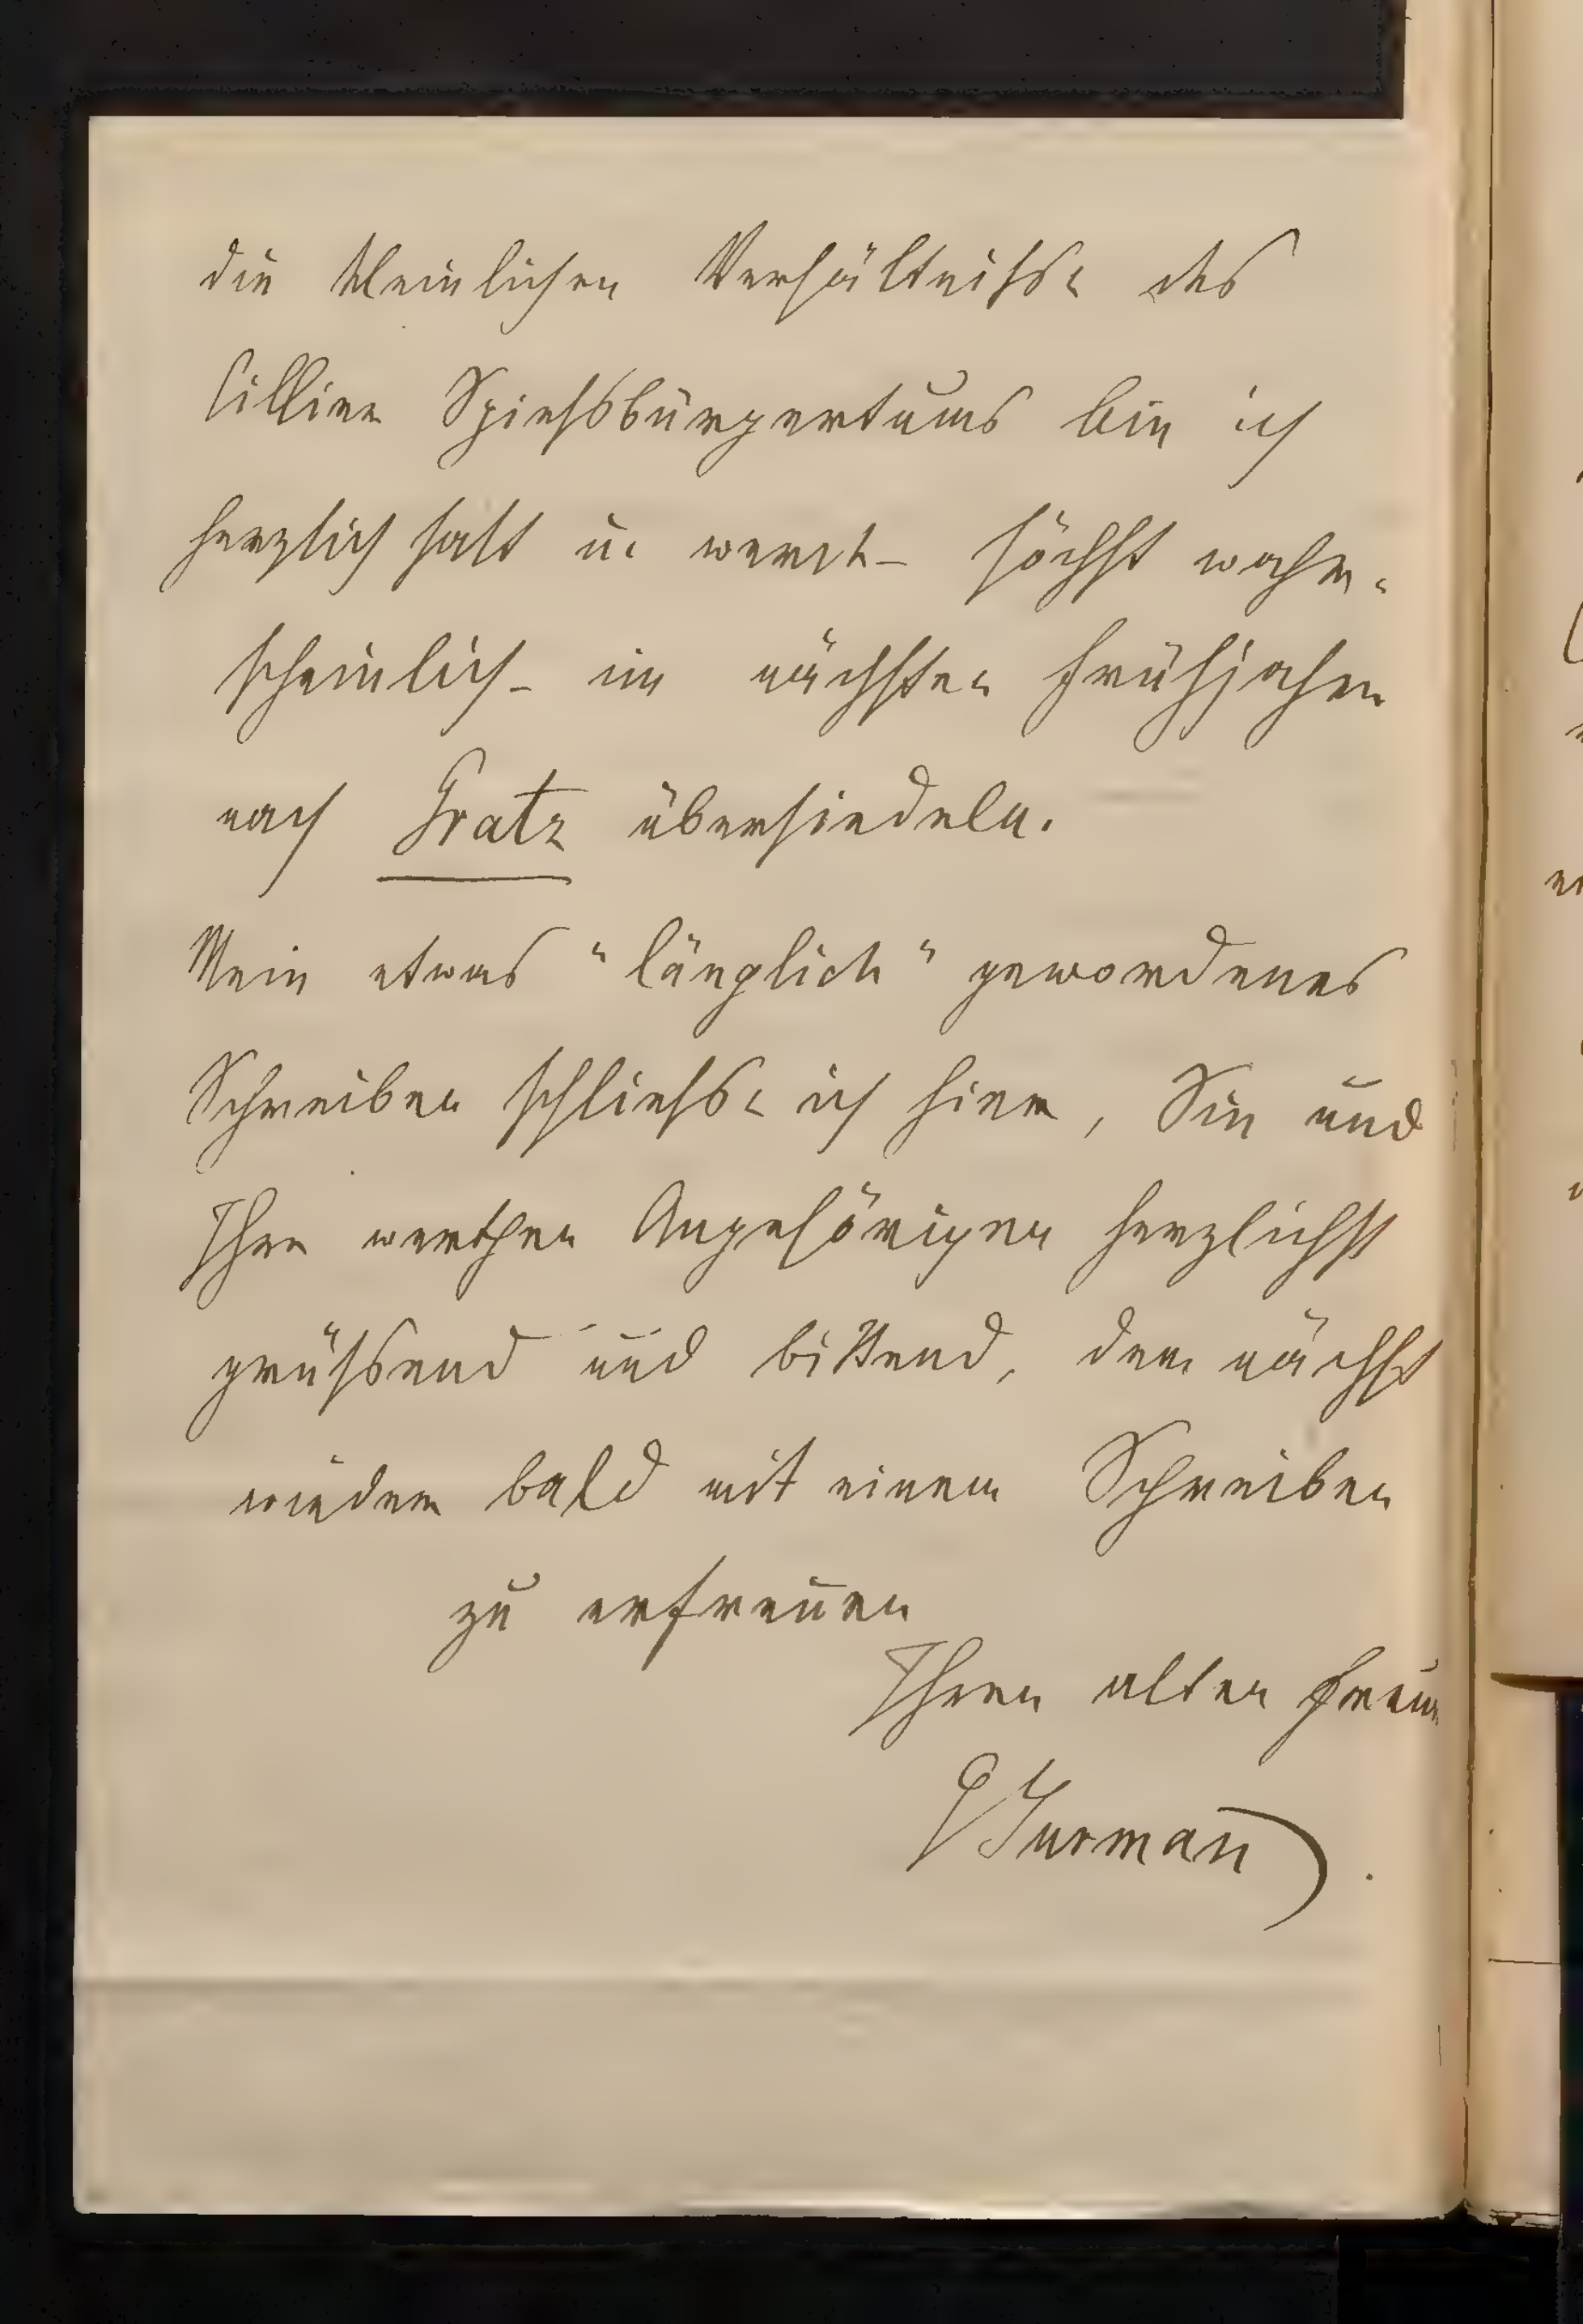 die kleinlichen Verhältnisse des
Cillier Spiessbürgertums bin ich
herzlich satt u. werde – höchst wahr-
scheinlich – im nächsten Frühjahre
nach Gratz übersiedeln.
Mein etwas "länglich" gewordenes
Schreiben schliesse ich hier, Sie und
Ihre werthen Angehörigen herzlichst
grüssend und bittend, demnächst
wieder bald mit einem Schreiben
zu erfreuen
Ihren alten Freun
GJurman.